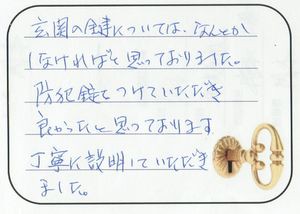 玄関の鍵については、なんとか
しなければと思っておりました。
防犯錠をつけていただき
良かったと思っております
丁寧に説明していただき
ました。